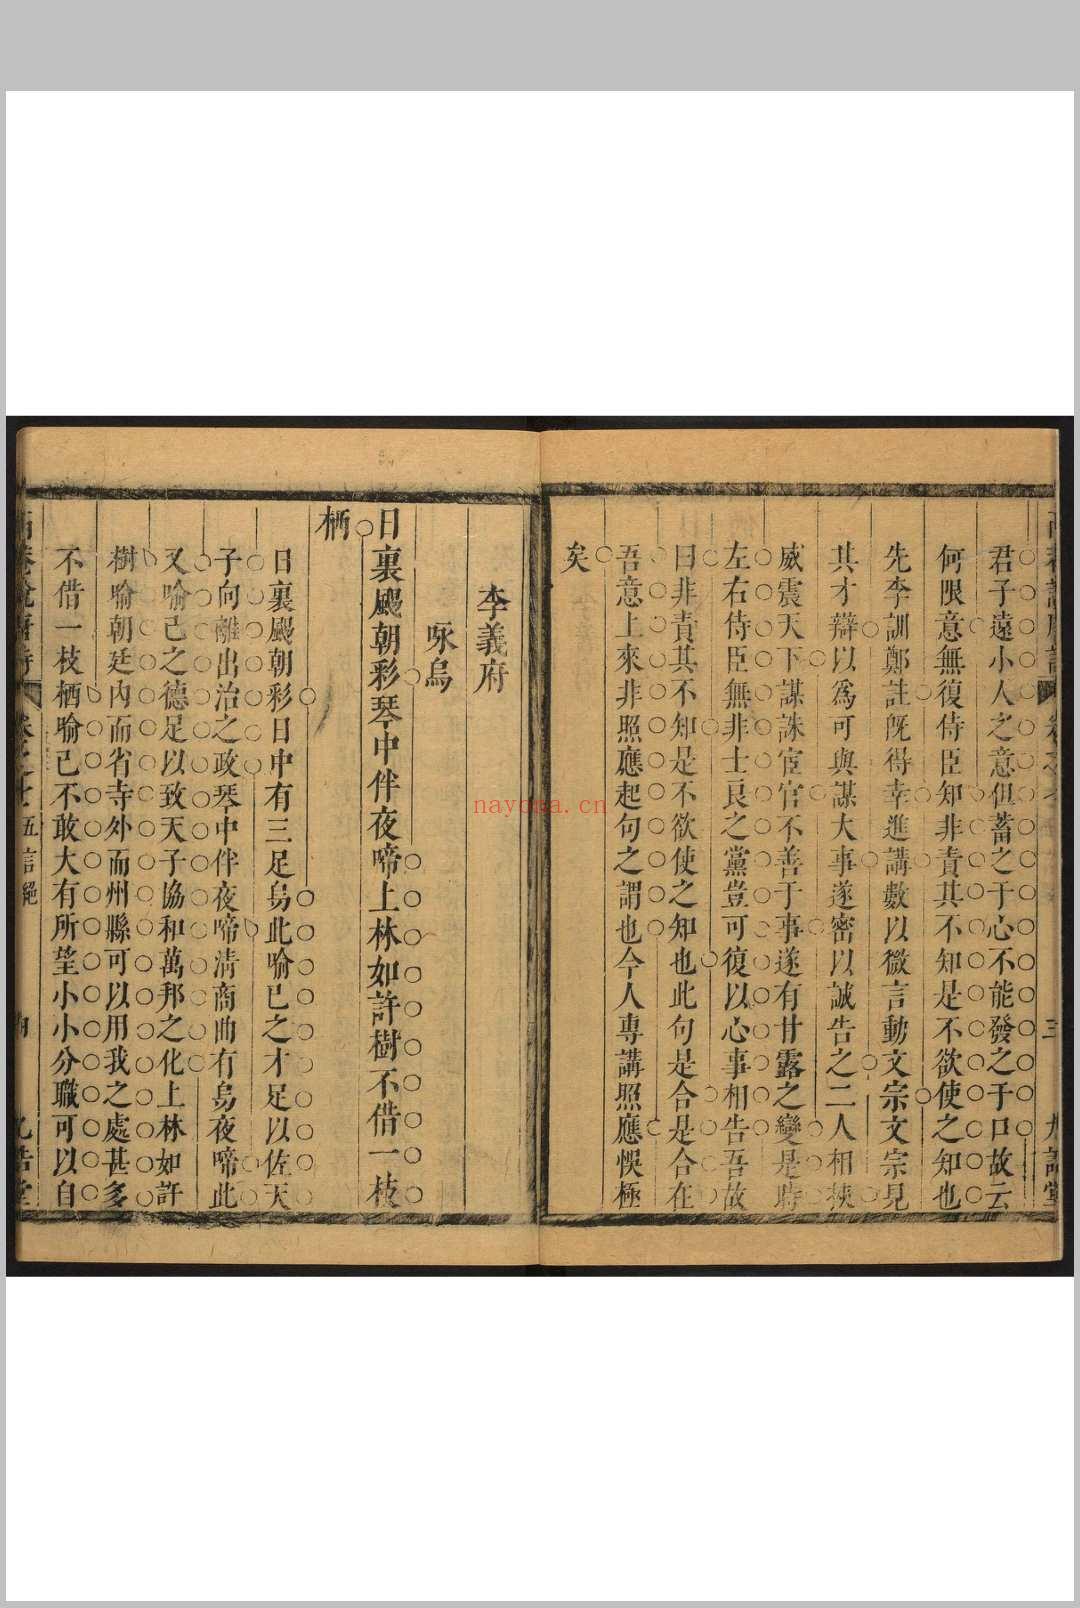 君子遠小人之意但蓄之于心不能發之于口故云
何限意無復侍臣知非責其不知是不欲使之知也
先李訓鄭註旣得幸進講數以微言動文宗文宗見
其才辯以爲可與謀大事遂密以誠告之二人相挾
威震天下謀誅宦官不善于事遂有甘露之變是時
左右侍臣無非士良之黨豈可復以心事相告吾故
曰非責其不知是不欲使之知也此句是合是合在
吾意上來非照應起句之謂也今人專講照應悞極
矣
李義府
咏烏
日裏颺朝彩琴中伴夜啼上林如許樹不借一枝
栖
日裏颺朝彩日中有三足烏此喻己之才足以佐天
子向離出治之政琴中伴夜啼淸商曲有烏夜啼此
又喻己之德足以致天子協和萬邦之化上林如許
樹喻朝廷內而省寺外而州縣可以用我之處甚多
不借一枝栖喻己不敢大有所望小小分職可以自
nayona.cn